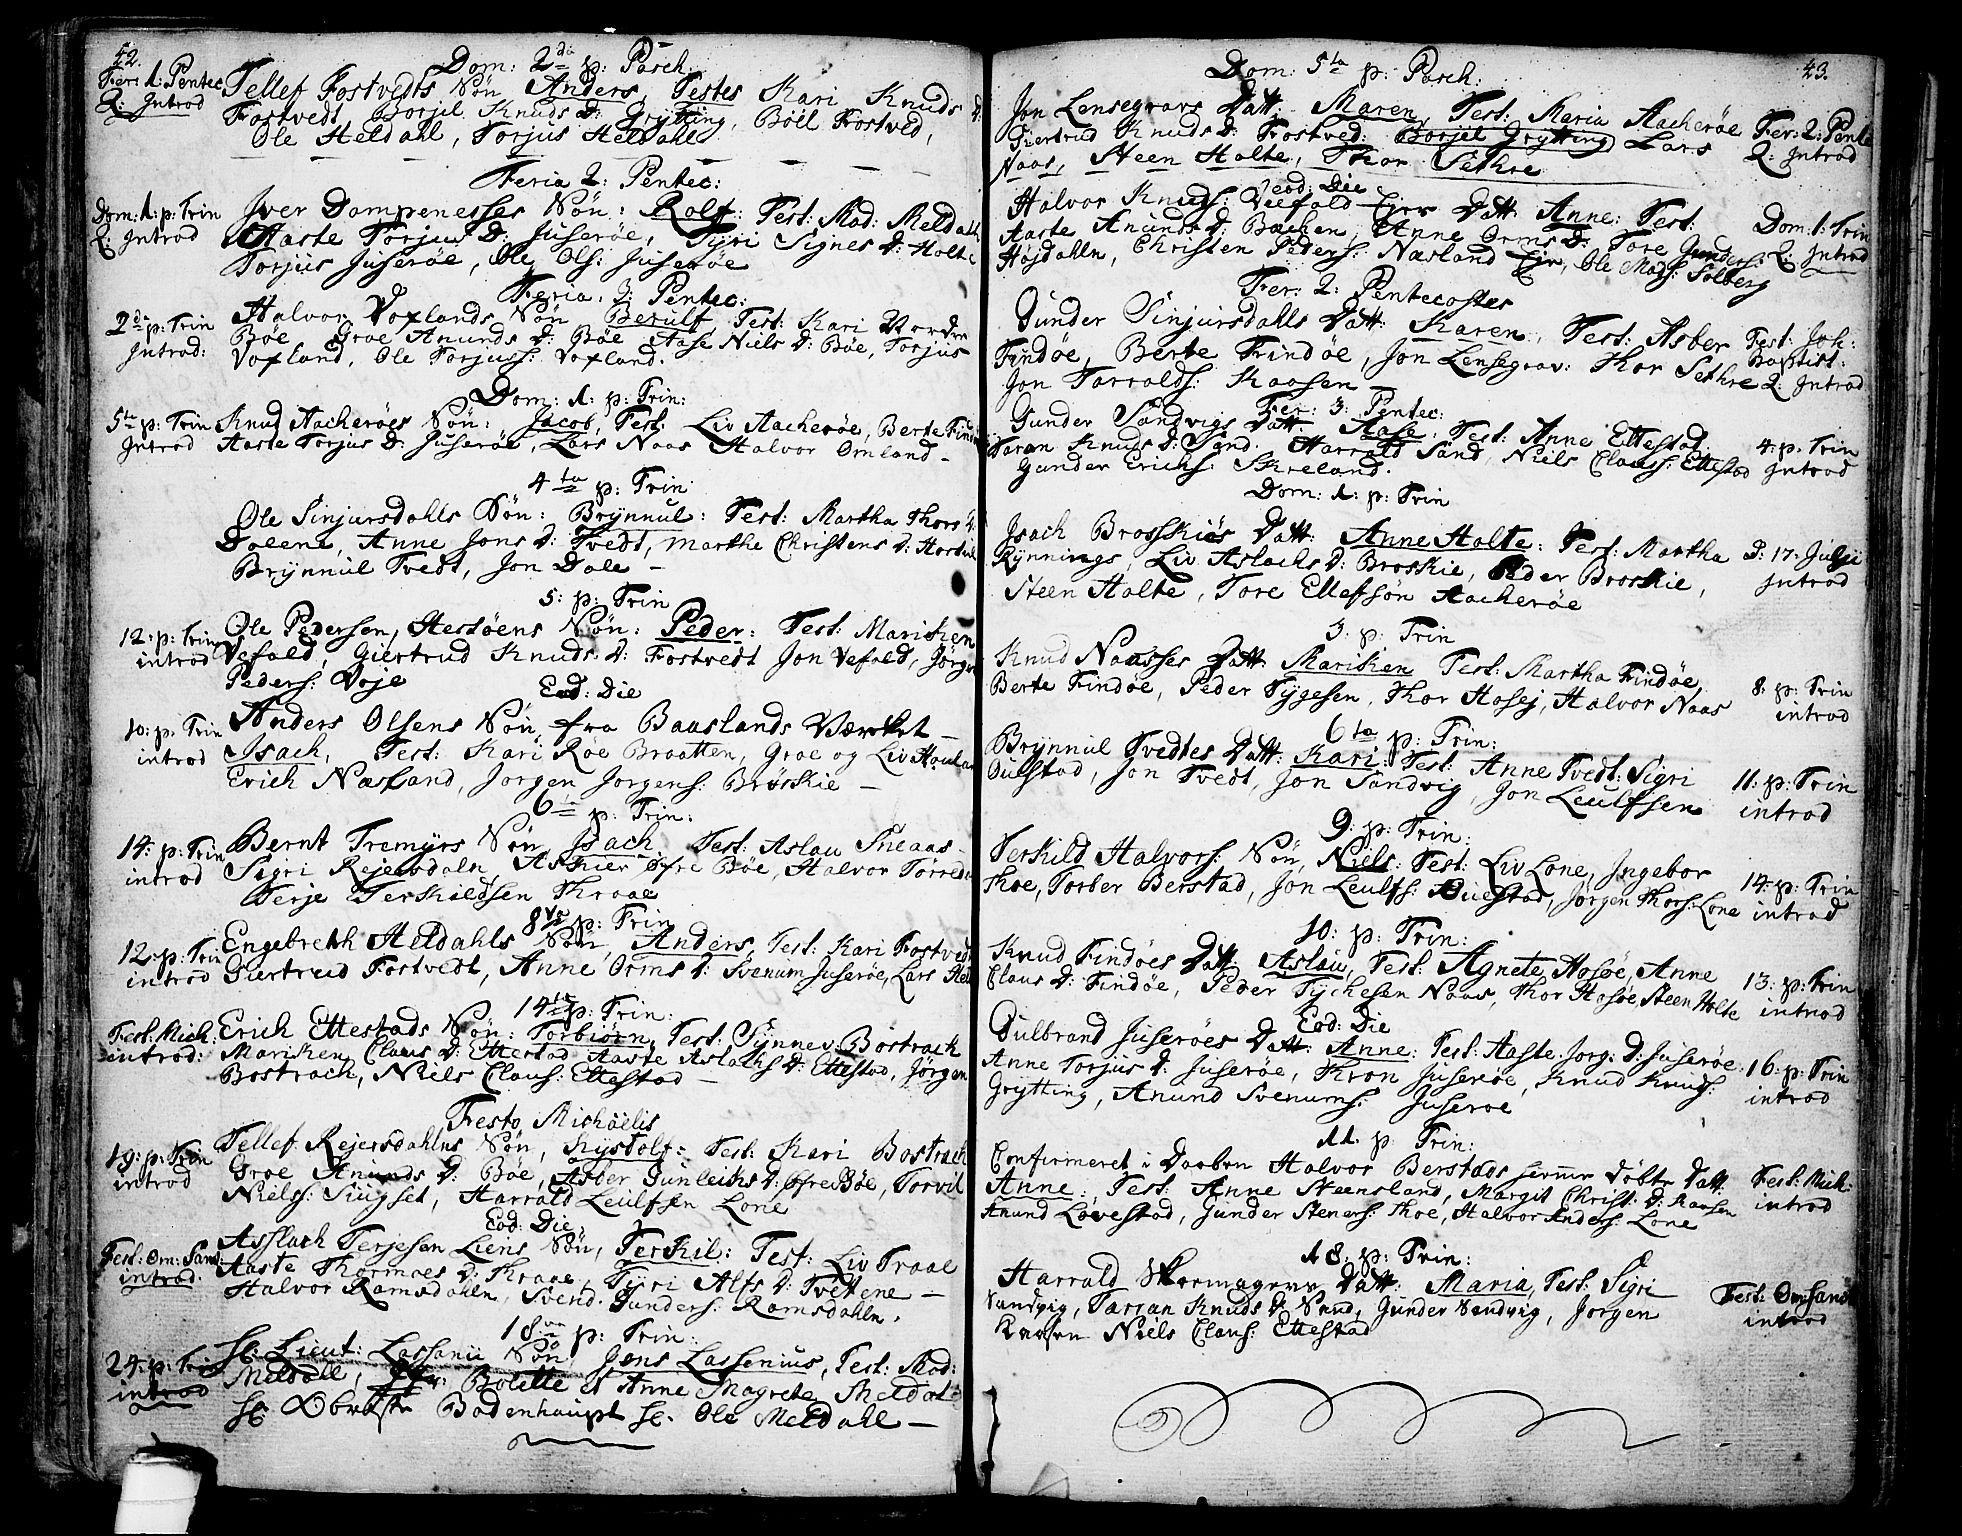 42.
Dom: 2da p: Pasch.
Fer: 1: Pentec
Q: Introd
Tellef Fostvedts Søn Anders, Testes Kari Knuds D:
Fostvedt, Borjil Knuds D: Grytting, Böel Fostved,
Ole Heldahl, Torjus Heldahl
Feria 2: Pentec:
Dom: 1: p: Trin
Q: Introd
Iver Dompenesses Søn: Rolf: Test: Mad: Meldahl
Aaste Torjus D: Juserøe, Tyri Signes D: Holte
Torjus Juserøe, Ole Ols: Juserøe
Feria: 3: Pentec:
2da p: Trin
Introd:
Halvor Voxlands Søn Berulf, Test: Kari Nordre
Bøe Groe Anunds D: Bøe Aase Niels D: Bøe, Torjus
Voxland, Ole Torjuss: Voxland.
Dom: 1: p: Trin:
5te p: Trin
Introd
Knud Aacherøes Søn: Jacob, Test: Liv Aacherøe, Berte Findøe
Aaste Torjus D: Juserøe, Lars Naas Halvor Omland –
4ta p: Trin:
Ole Sinjursdahls Søn: Brynnul: Test: Martha Thors D:
Dolene, Anne Jons D: Tvedt, Marthe Christens D:
Brynnul Tvedt, Jon Dale –
5: p: Trin
12: p: Trin
introd
Ole Pedersen, Hestøens Søn: Peder: Test: Marichen
Vefald, Giertrud Knuds D: Fostvedt Jon Vefald, Jørgen
Peders: Voje
Eod: Die
10: p: Trin
introd
Anders Olsens Søn, fra Baaslands Værket –
Isach, Test: Kari Røe Braatten, Groe og Liv
Erich Næsland, Jorgen Jorgens: Brøskie –
6ta p: Trin:
14: p: Trin
introd
Bernt Tremyrs Søn, Isach, Test: Aslau Sneaas
Sigri Rejersdaln, Askier øfre Bøe, Halvor
Terje Terkildsen Thraae
8va p: Trin
12: p: Trin
introd
Engebreth Heldahls Søn, Anders, Test: Kari Fostvedt
Giertrud Fostvedt, Anne Orms D: Svenum Juserøe, Lars
14ta p: Trin:
Fest: Mich:
introd:
Erich Ettestads Søn: Torbiörn, Test: Synnev Bostrach
Marichen Claus D: Ettestad Aaste Aslachs D: Ettestad, Jørgen
Bostrach, Niels Claus: Ettestad –
Festo Michäelis
19: p: Trin
introd
Tellef Rejersdahlns Søn, Kystolf: Test: Kari Bostrach
Groe Anunds D: Bøe, Asber Gunleichs D: øfre Bøe, Torvil
Niels: Siugset, Harrald Leulfsen Lone
Eod: Die:
Fest: Om: Sanct:
introd:
Asslach Terjesen Liens Søn, Terkil: Test: Liv Traae
Aaste Thormoes D: Thraae, Tyri Alfs D: Tvetene –
Halvor Ramsdahln, Svend Gunders: Ramsdahln.
18va p: Trin:
24: p: Trin
introd
Sr: Lieut: Lassenii Søn Jens Lassenius, Test: Mad:
Meldahl, Bolette et Anne Magrete Meldahl
Sr: Bodenhaupt Sr. Ole Meldahl –
43.
Dom: 5ta p: Pasch:
Jon Lensegravs Datt: Maren, Test: Maria Aacherøe
Giertrud Knuds D: Fostved: Borjil Grytting Lars
Naas, Steen Holte, Thor Sethre
Fer: 2: Pente
Q: Introd
eod: Die
Halvor Knuds: Veefald Datt: Anne: Test:
Aaste Anunds D: Bachen, Anne Orms D: Tore Gunders:
Højdahln, Christen Peders: Næsland Ole Mads: Solberg
Dom: 1: Trin
Q: Introd
Fer: 2: Pentecostes
Gunder Sinjursdahls Datt: Karen, Test: Asber
Findøe, Berte Findøe, Jon Lensegrav: Thor Sethre
Jon Tarralds: Kaasen –
Fest: Joh:
Baptist:
Q: Introd
Fer: 3: Pentec:
Gunder Sandvigs Datt: Aase, Test: Anne Ettestad
Taran Knuds D: Sand. Harrald Sand, Niels Claus: Ettestad
Gunder Erichs: Skreland.
4: p: Trin
Introd
Dom: 1: p: Trin
Isach Brosskies Datt: Anne Holte: Test: Martha
Rynnings, Liv Aslachs D: Broskie, Peder Broskie,
Steen Holte, Tore Ellefsøn Aacherøe
d: 17: Julji
Introd
3: p: Trin
Knud Naasses Datt: Marichen Test: Martha Findøe,
Berte Findøe, Peder Tygesen, Thor Hosej, Halvor Naas
8: p: Trin
introd
6ta p: Trin:
Brynnul Tvedtes Datt: Kari: Test: Anne Tvedt: Sigri
Ouestad, Jon Tvedt, Jon Sandvig, Jon Leulfsen
11: p: Trin
introd
9: p: Trin:
Terkild Halvors: Søn, Niels: Test: Liv Lone, Ingebor
Thoe, Torber Berstad, Jon Leulfs: Ouestad, Jørgen Thors: Lone
14: p: Trin
introd
10: p: Trin:
Knud Findøes Datt: Aslau, Test: Agnete Hosøe, Anne
Claus D: Findøe, Peder Tychesen Naas, Thor Hosøe, Steen Holte
13: p: Trin
introd
Eod: Die
Gulbrand Juserøes Datt: Anne: Test: Aaste Jorg: D: Juserøe
Anne Torjus D: Juserøe, Tron Juserøe, Knud Knuds:
Grytting, Anund Svenums: Juserøe
16: p: Trin
introd
11. p: Trin:
Confirmeret i Daaben Halvor Berstads hjemme døbte Datt:
Anne:, Test: Anne Steensland, Margit Christ: D: Kaasen
Anund Lovestad, Gunder Steners: Thoe, Halvor Anders: Lone
Fest: Mich:
introd
18: p: Trin:
Harrald Datt: Maria, Test: Sigri
Sandvig, Tarran Knuds D: Sand, Gunder Sandvig, Jorgen
Kaasen Niels Claus: Ettestad
Fest: Om: Sanct
introd